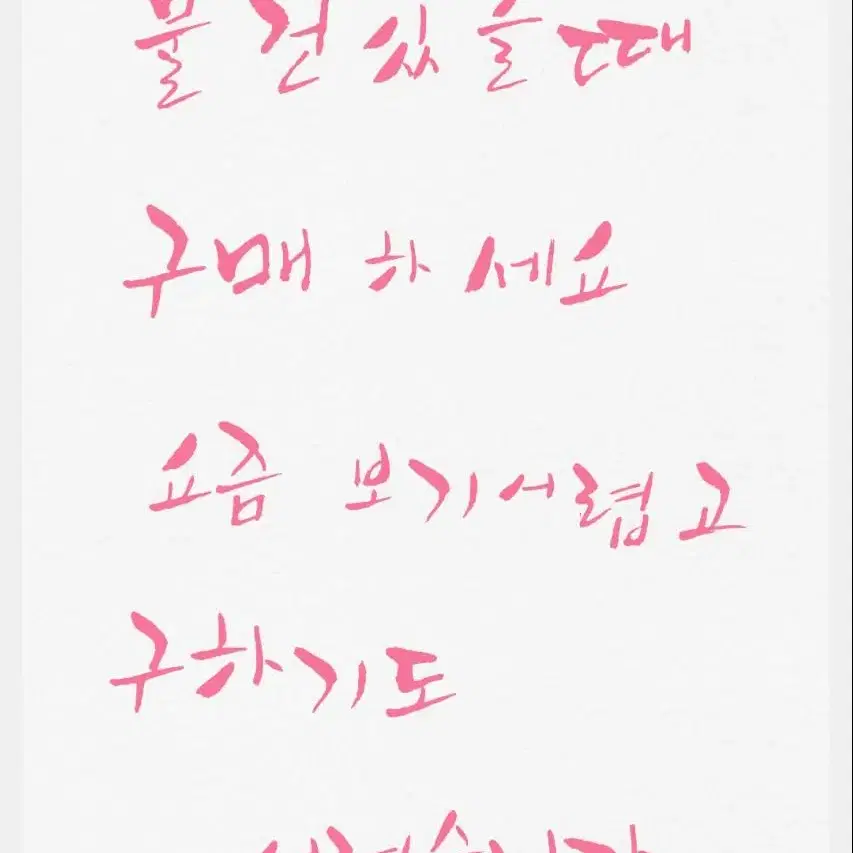 물건있을때
구매 하세요
요즘 보기서렵고
구하기도